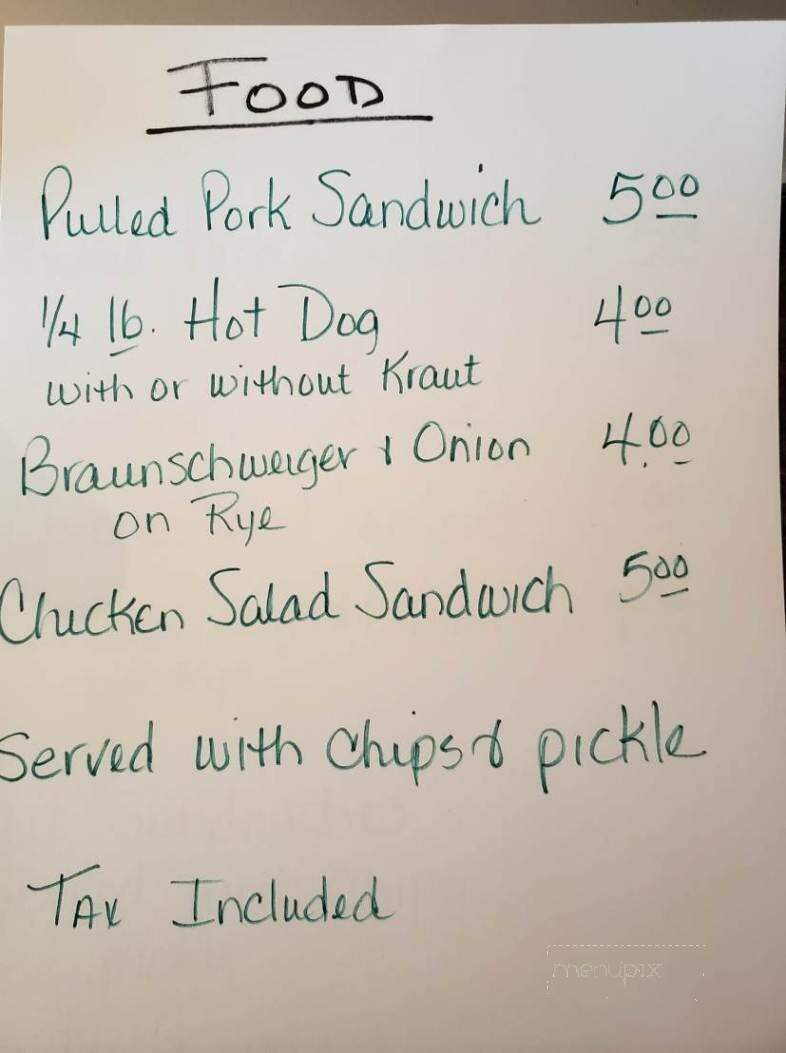 FOOD
Pulled Pork Sandwich 5 00
1/4 lb. Hot Dog 4 00
with or without Kraut
Braunschweiger & Onion 4.00
on Rye
Chicken Salad Sandwich 5 00
Served with Chips & pickle
TAX Included
menupix